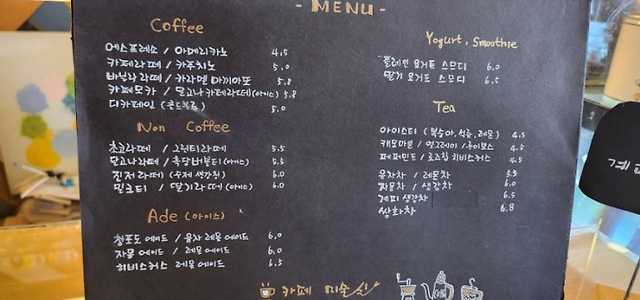 - MENU -
Coffee
에스프레소 / 아메리카노 4.5
카페라떼 / 카푸치노 5.0
바닐라라떼 / 카라멜 마끼아또 5.8
카페모카 / 달고나 카페라떼 (아이스) 5.8
디카페인 (콜드브루) 5.0
Non Coffee
초코라떼 / 그린티라떼 5.5
달고나라떼 / 흑당버블티 (아이스) 5.5
진저라떼 (수제 생강청) 6.0
밀크티 / 딸기라떼 (아이스) 6.0
Ade (아이스)
청포도 에이드 / 유자 레몬 에이드 6.0
자몽 에이드 / 레몬 에이드 6.0
히비스커스 레몬에이드 6.5
Yogurt, Smoothie
플레인 요거트 스무디 6.0
딸기 요거트 스무디 6.5
Tea
아이스티 (복숭아, 석류, 레몬) 4.5
캐모마일 / 얼그레이 / 루이보스 4.5
페퍼민트 / 로즈힙 히비스커스 4.5
유자차 / 레몬차 5.5
자몽차 / 생강차 6.0
계피 생강차 6.5
쌍화차 6.8
카페 미술
계